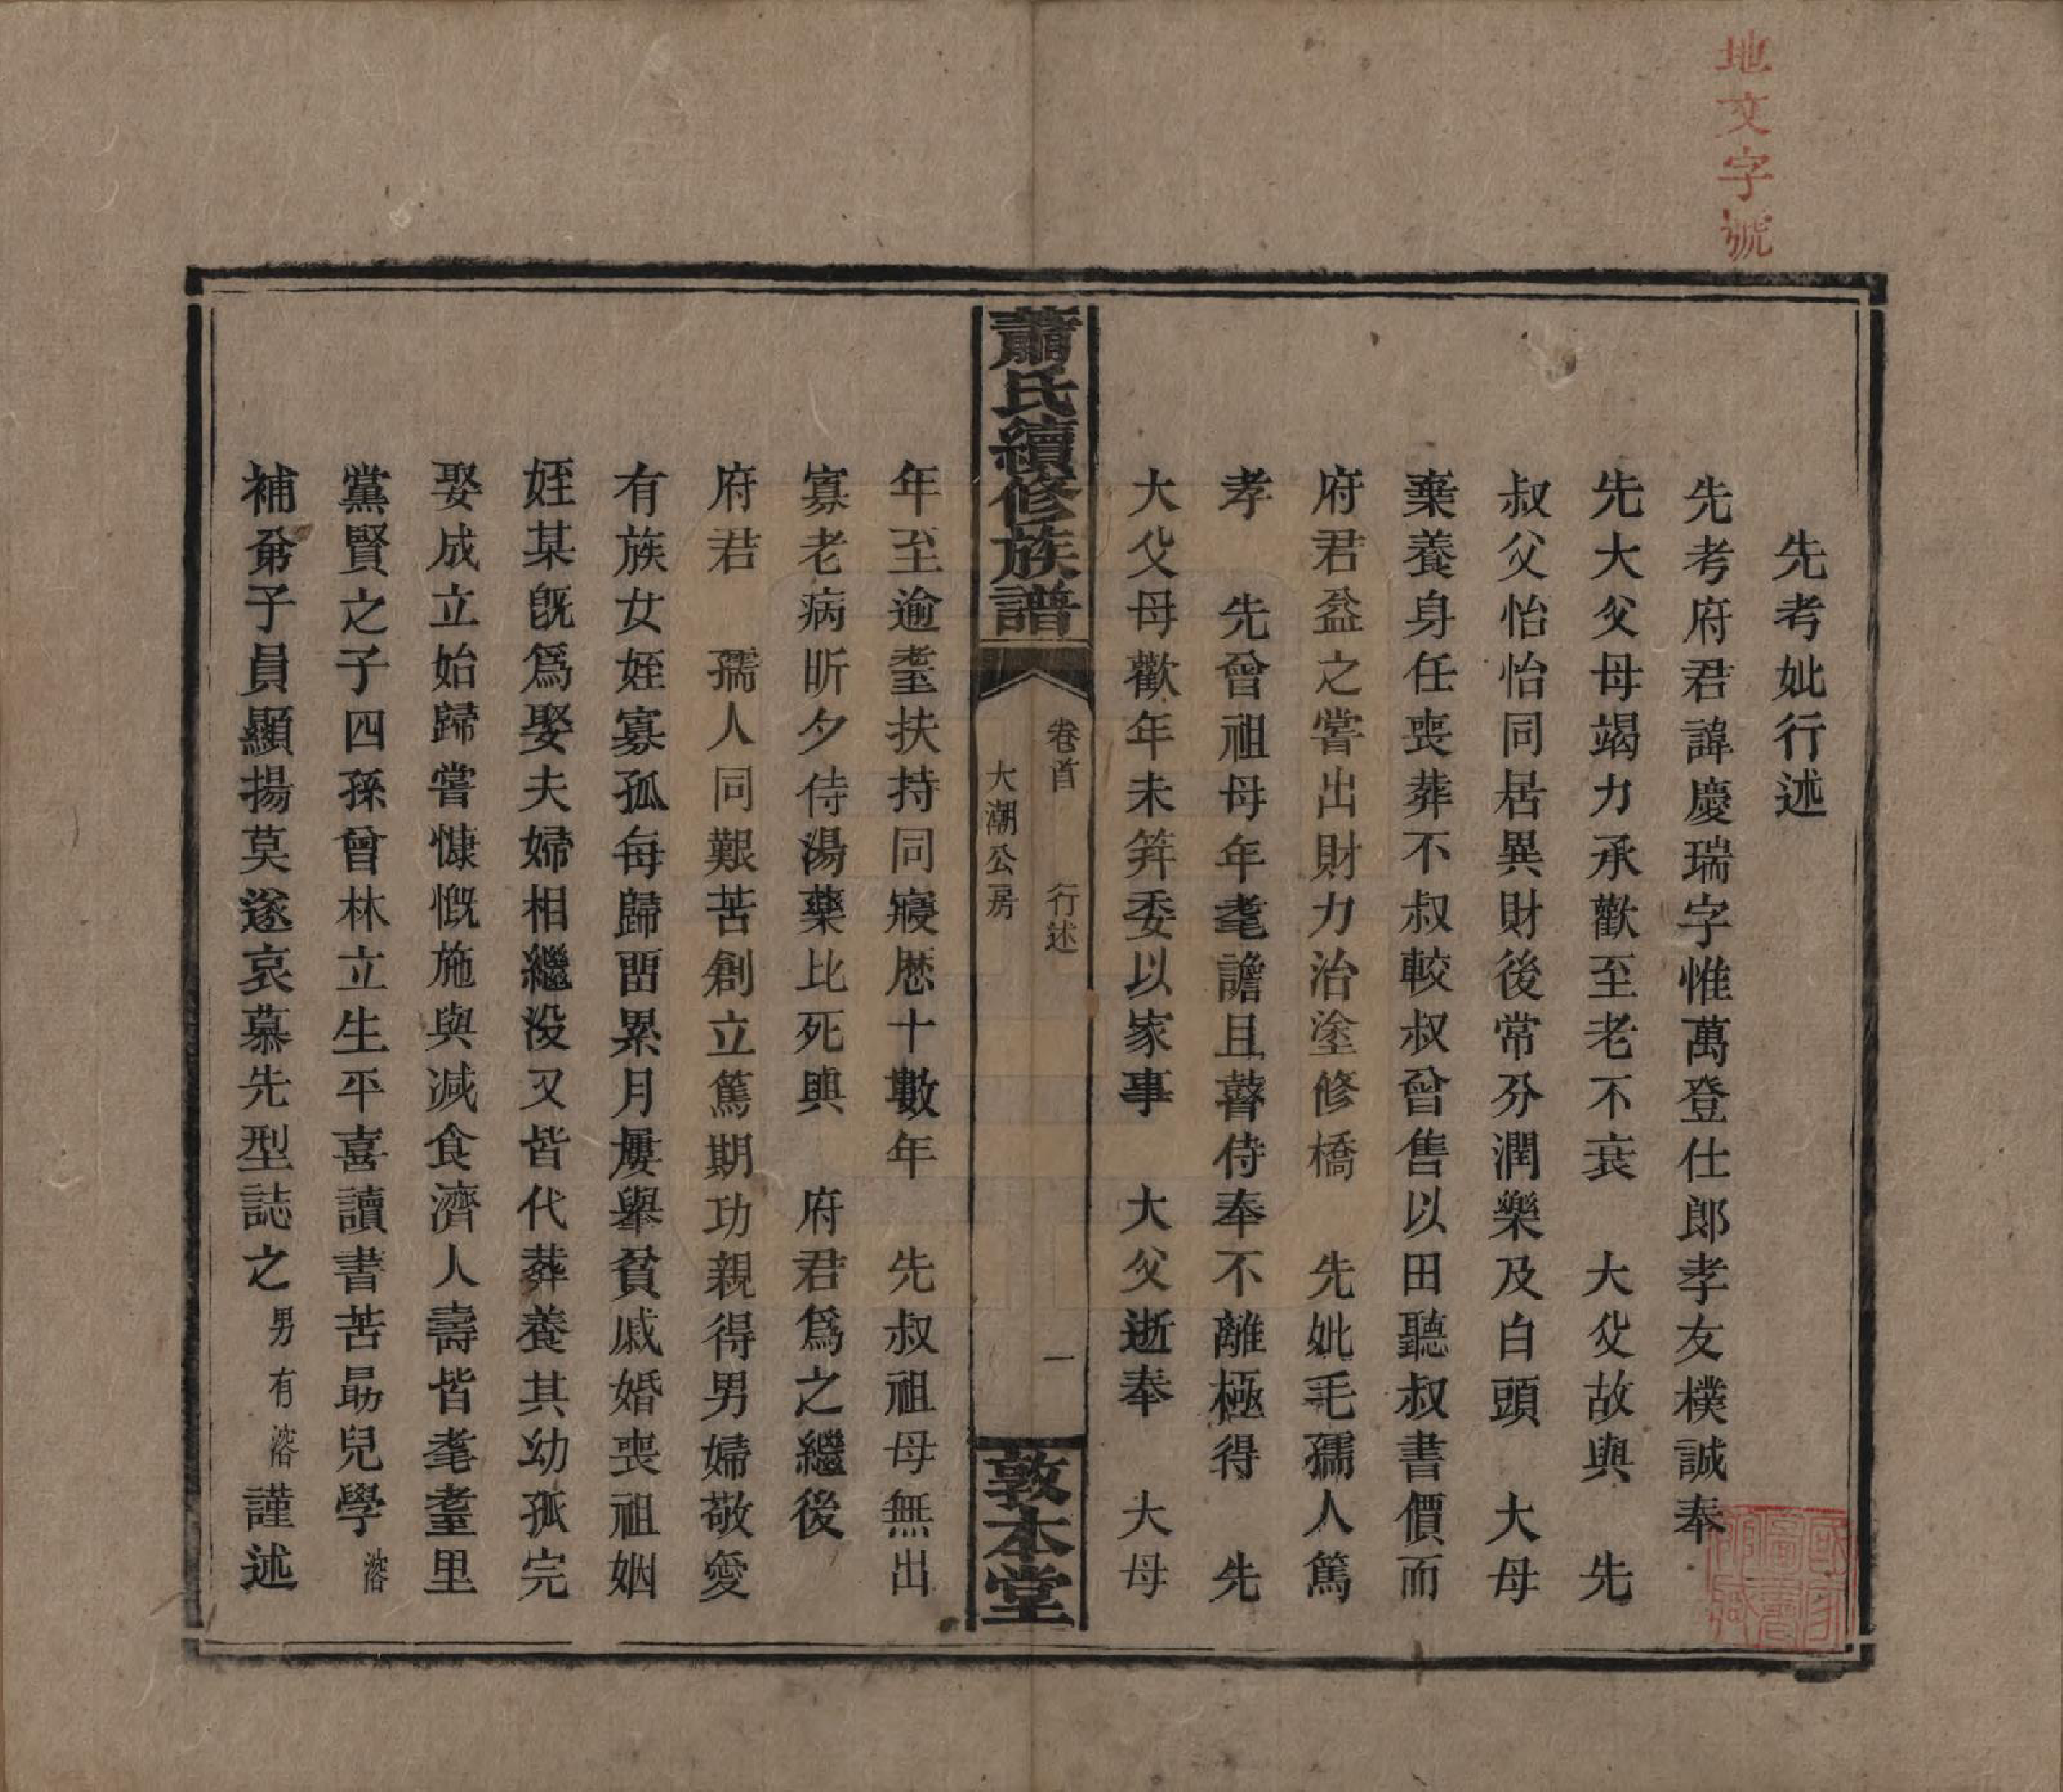 地文字號
先考妣行述
先考府君諱慶瑞字惟萬登仕郎孝友樸誠奉
先大父母竭力承歡至老不衰 大父故與 先
叔父怡怡同居異財後常分潤樂及白頭 大母
棄養身任喪葬不叔較叔曾售以田聽叔書價而
府君益之嘗出財力治塗修橋 先妣毛孺人篤
孝 先曾祖母年耄譫且瞽侍奉不離極得 先
大父母歡年未筓委以家事 大父逝奉 大母
蕭氏續修族譜
卷首 行述 一
大潮公房
敦本堂
年至逾耋扶持同寢歷十數年 先叔祖母無出
寡老病昕夕侍湯藥比死與 府君爲之繼後
府君 孺人同艱苦創立篤期功親得男婦敬愛
有族女姪寡孤每歸畱累月屢舉貧戚婚喪祖姻
姪某旣爲娶夫婦相繼没又皆代葬養其幼孤完
娶成立始歸嘗慷慨施與减食濟人壽皆耄耋里
黨賢之子四孫曾林立生平喜讀書苦勗兒學溶
補弟子員顯揚莫遂哀慕先型誌之男有溶謹述
國家圖書館藏